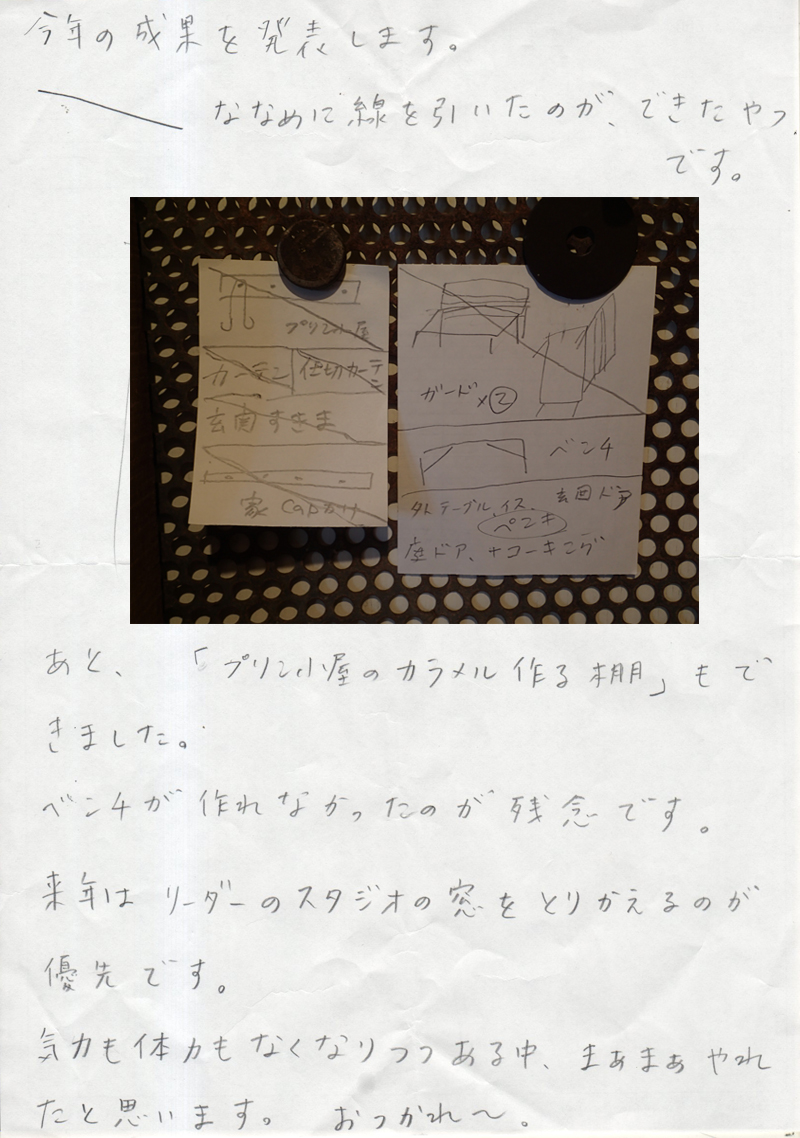 今年の成果を発表します。
ななめに線を引いたのが、できたやつ
です。
プリン小屋
カーテン
仕切カーテン
玄関すきま
家capかけ
ガード×②
ベンチ
外テーブル、イス、玄関ドア
ペンキ
ドア、+コーキング
あと、「プリン小屋のカラメル作る棚」もで
きました。
ベンチが作れなかったのが残念です。
来年はリーダーのスタジオの窓をとりかえるのが
優先です。
気力も体力もなくなりつつある中、まぁまぁやれ
たと思います。 おつかれ〜。